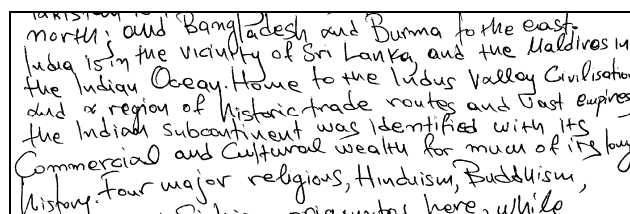 north; and Bangladesh and Burma to the east.
India is in the vicinity of Sri Lanka, and the Maldives in
the Indian Ocean. Home to the Indus Valley Civilisation
and a region of historic trade routes and vast empires
the Indian subcontinent was identified with its
Commercial and Cultural wealth for much of its long
history. Four major religious, Hinduism, Buddhism,
originated here, while